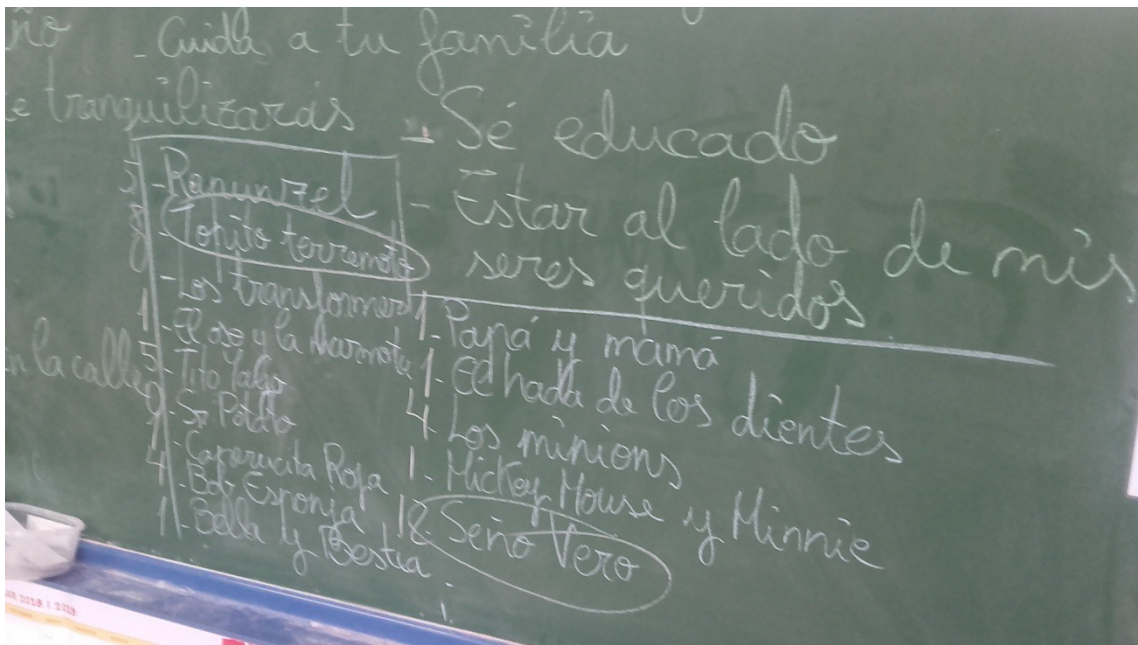 ño
- Cuida a tu familia
e tranquilizarás
- Sé educado
- Estar al lado de mis
seres queridos
3 - Rapunzel
8 - Topito terremoto
- Los transformers
1 - El oso y la marmota
5 - Tito Yayo
- Sr. Potato
1 - Caperucita Roja
4 - Bob Esponja
1 - Bella y Bestia
1 - Papá y mamá
1 - El hada de los dientes
4 - Los minions
1 - Mickey Mouse y Minnie
18 - Seño Vero
n la calle
2018 / 2019